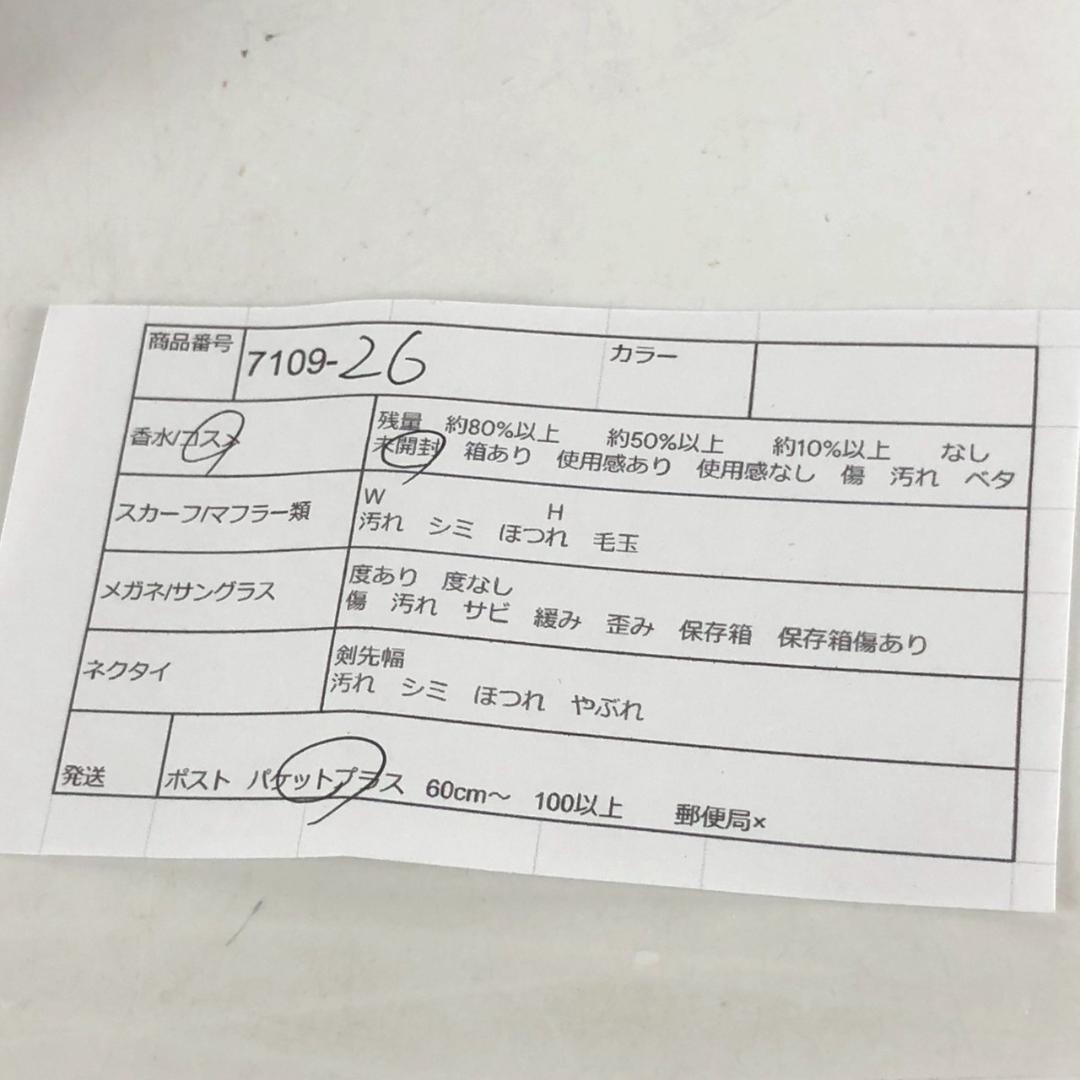 商品番号 7109-26 カラー
香水/コスメ
残量 約80%以上 約50%以上 約10%以上 なし
未開封 箱あり 使用感あり 使用感なし 傷 汚れ ベタ
スカーフ/マフラー類
W H
汚れ シミ ほつれ 毛玉
メガネ/サングラス
度あり 度なし
傷 汚れ サビ 緩み 歪み 保存箱 保存箱傷あり
ネクタイ
剣先幅
汚れ シミ ほつれ やぶれ
発送 ポスト パケットプラス 60cm～ 100以上 郵便局×